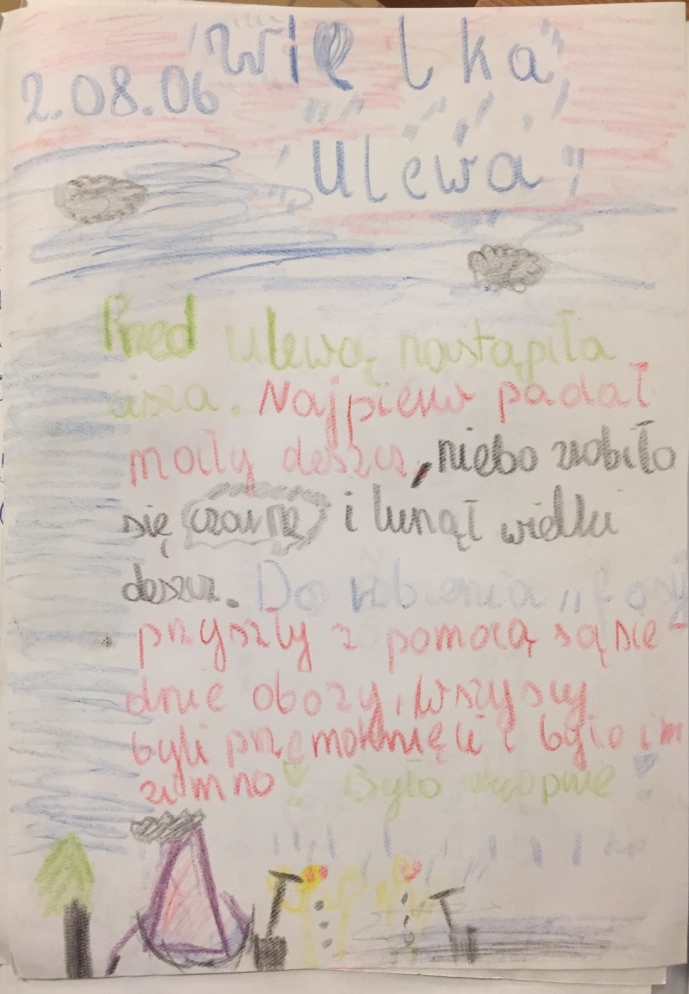 Wielka
2.08.06
Ulewa
Przed ulewą nastąpiła
cisza. Najpierw padał
mały deszcz, niebo zrobiło
się czarne i lunął wielki
deszcz. Do robienia „fosy
przyszły z pomocą sąsie-
dnie obozy, wszyscy
byli przemoknięci i było im
zimno! Było okropnie!